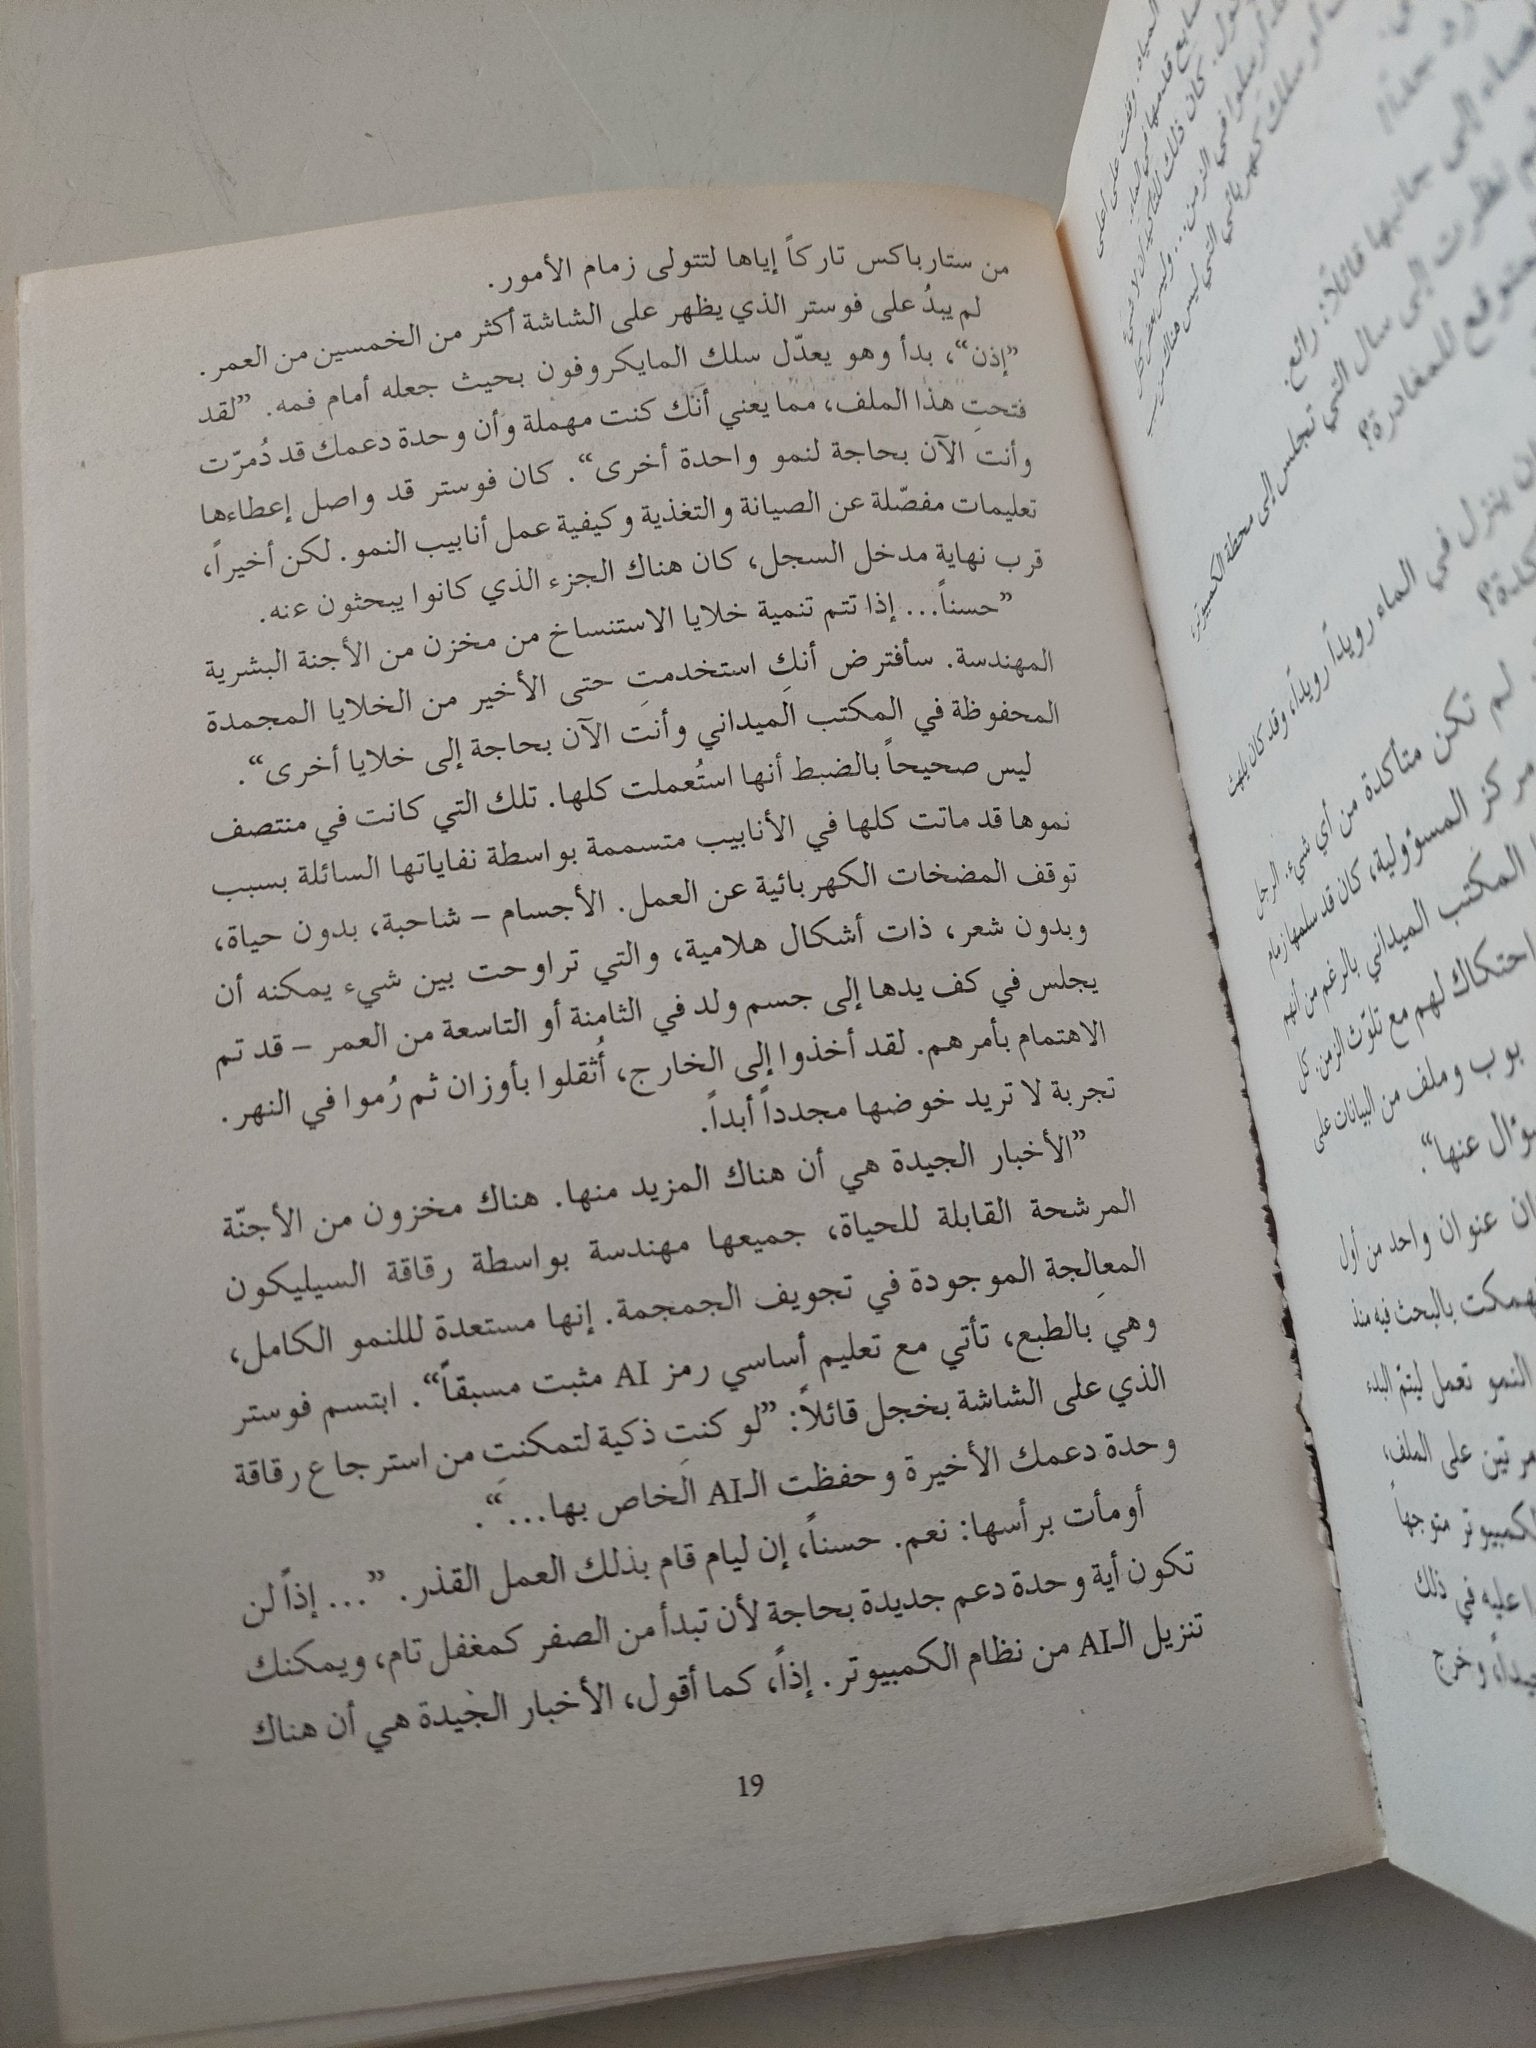 من ستارباكس تاركاً إياها لتتولى زمام الأمور.
لم يبدُ على فوستر الذي يظهر على الشاشة أكثر من الخمسين من العمر.
”إذن“، بدأ وهو يعدّل سلك المايكروفون بحيث جعله أمام فمه. ”لقد
فتحتِ هذا الملف، مما يعني أنَك كنت مهملة وأن وحدة دعمك قد دُمرّت
وأنت الآن بحاجة لنمو واحدة أخرى“. كان فوستر قد واصل إعطاءها
تعليمات مفصّلة عن الصيانة والتغذية وكيفية عمل أنابيب النمو. لكن أخيراً،
قرب نهاية مدخل السجل، كان هناك الجزء الذي كانوا يبحثون عنه.
”حسناً... إذا تتم تنمية خلايا الاستنساخ من مخزن من الأجنة البشرية
المهندسة. سأفترض أنكِ استخدمتِ حتى الأخير من الخلايا المجمدة
المحفوظة في المكتب الميداني وأنت الآن بحاجة إلى خلايا أخرى“.
ليس صحيحاً بالضبط أنها استُعملت كلها. تلك التي كانت في منتصف
نموها قد ماتت كلها في الأنابيب متسممة بواسطة نفاياتها السائلة بسبب
توقف المضخات الكهربائية عن العمل. الأجسام – شاحبة، بدون حياة،
وبدون شعر، ذات أشكال هلامية، والتي تراوحت بين شيء يمكنه أن
يجلس في كف يدها إلى جسم ولد في الثامنة أو التاسعة من العمر – قد تم
الاهتمام بأمرهم. لقد أخذوا إلى الخارج، أُثقلوا بأوزان ثم رُموا في النهر.
تجربة لا تريد خوضها مجدداً أبداً.
”الأخبار الجيدة هي أن هناك المزيد منها. هناك مخزون من الأجنّة
المرشحة القابلة للحياة، جميعها مهندسة بواسطة رقاقة السيليكون
المعالِجة الموجودة في تجويف الجمجمة. إنها مستعدة لللنمو الكامل،
وهي بالطبع، تأتي مع تعليم أساسي رمز AI مثبت مسبقاً“. ابتسم فوستر
الذي على الشاشة بخجل قائلاً: ”لو كنتِ ذكية لتمكنتِ من استرجاع رقاقة
وحدة دعمك الأخيرة وحفظت الـAI الخاص بها...“.
أومأت برأسها: نعم. حسناً، إن ليام قام بذلك العمل القذر. ”... إذاً لن
تكون أية وحدة دعم جديدة بحاجة لأن تبدأ من الصفر كمغفل تام، ويمكنك
تنزيل الـAI من نظام الكمبيوتر. إذاً، كما أقول، الأخبار الجيدة هي أن هناك
19
رائع.
نظرت إلى سال التي تجلس إلى محطة الكمبيوتر،
المتوقع للمغادرة؟
ينزل في الماء رويداً رويداً، وقد كان يلهث
لم تكن متأكدة من أي شيء. الرجل
مركز المسؤولية، كان قد سلمها زمام
المكتب الميداني بالرغم من أنهم
احتكاك لهم مع تلوّث الزمن. كل
بوب وملف من البيانات على
عنها“.
عنوان واحد من أول
بالبحث فيه منذ
النمو تعمل ليتمّ البدء
مرتين على الملف،
متوجهاً
عليه في ذلك
وخرج